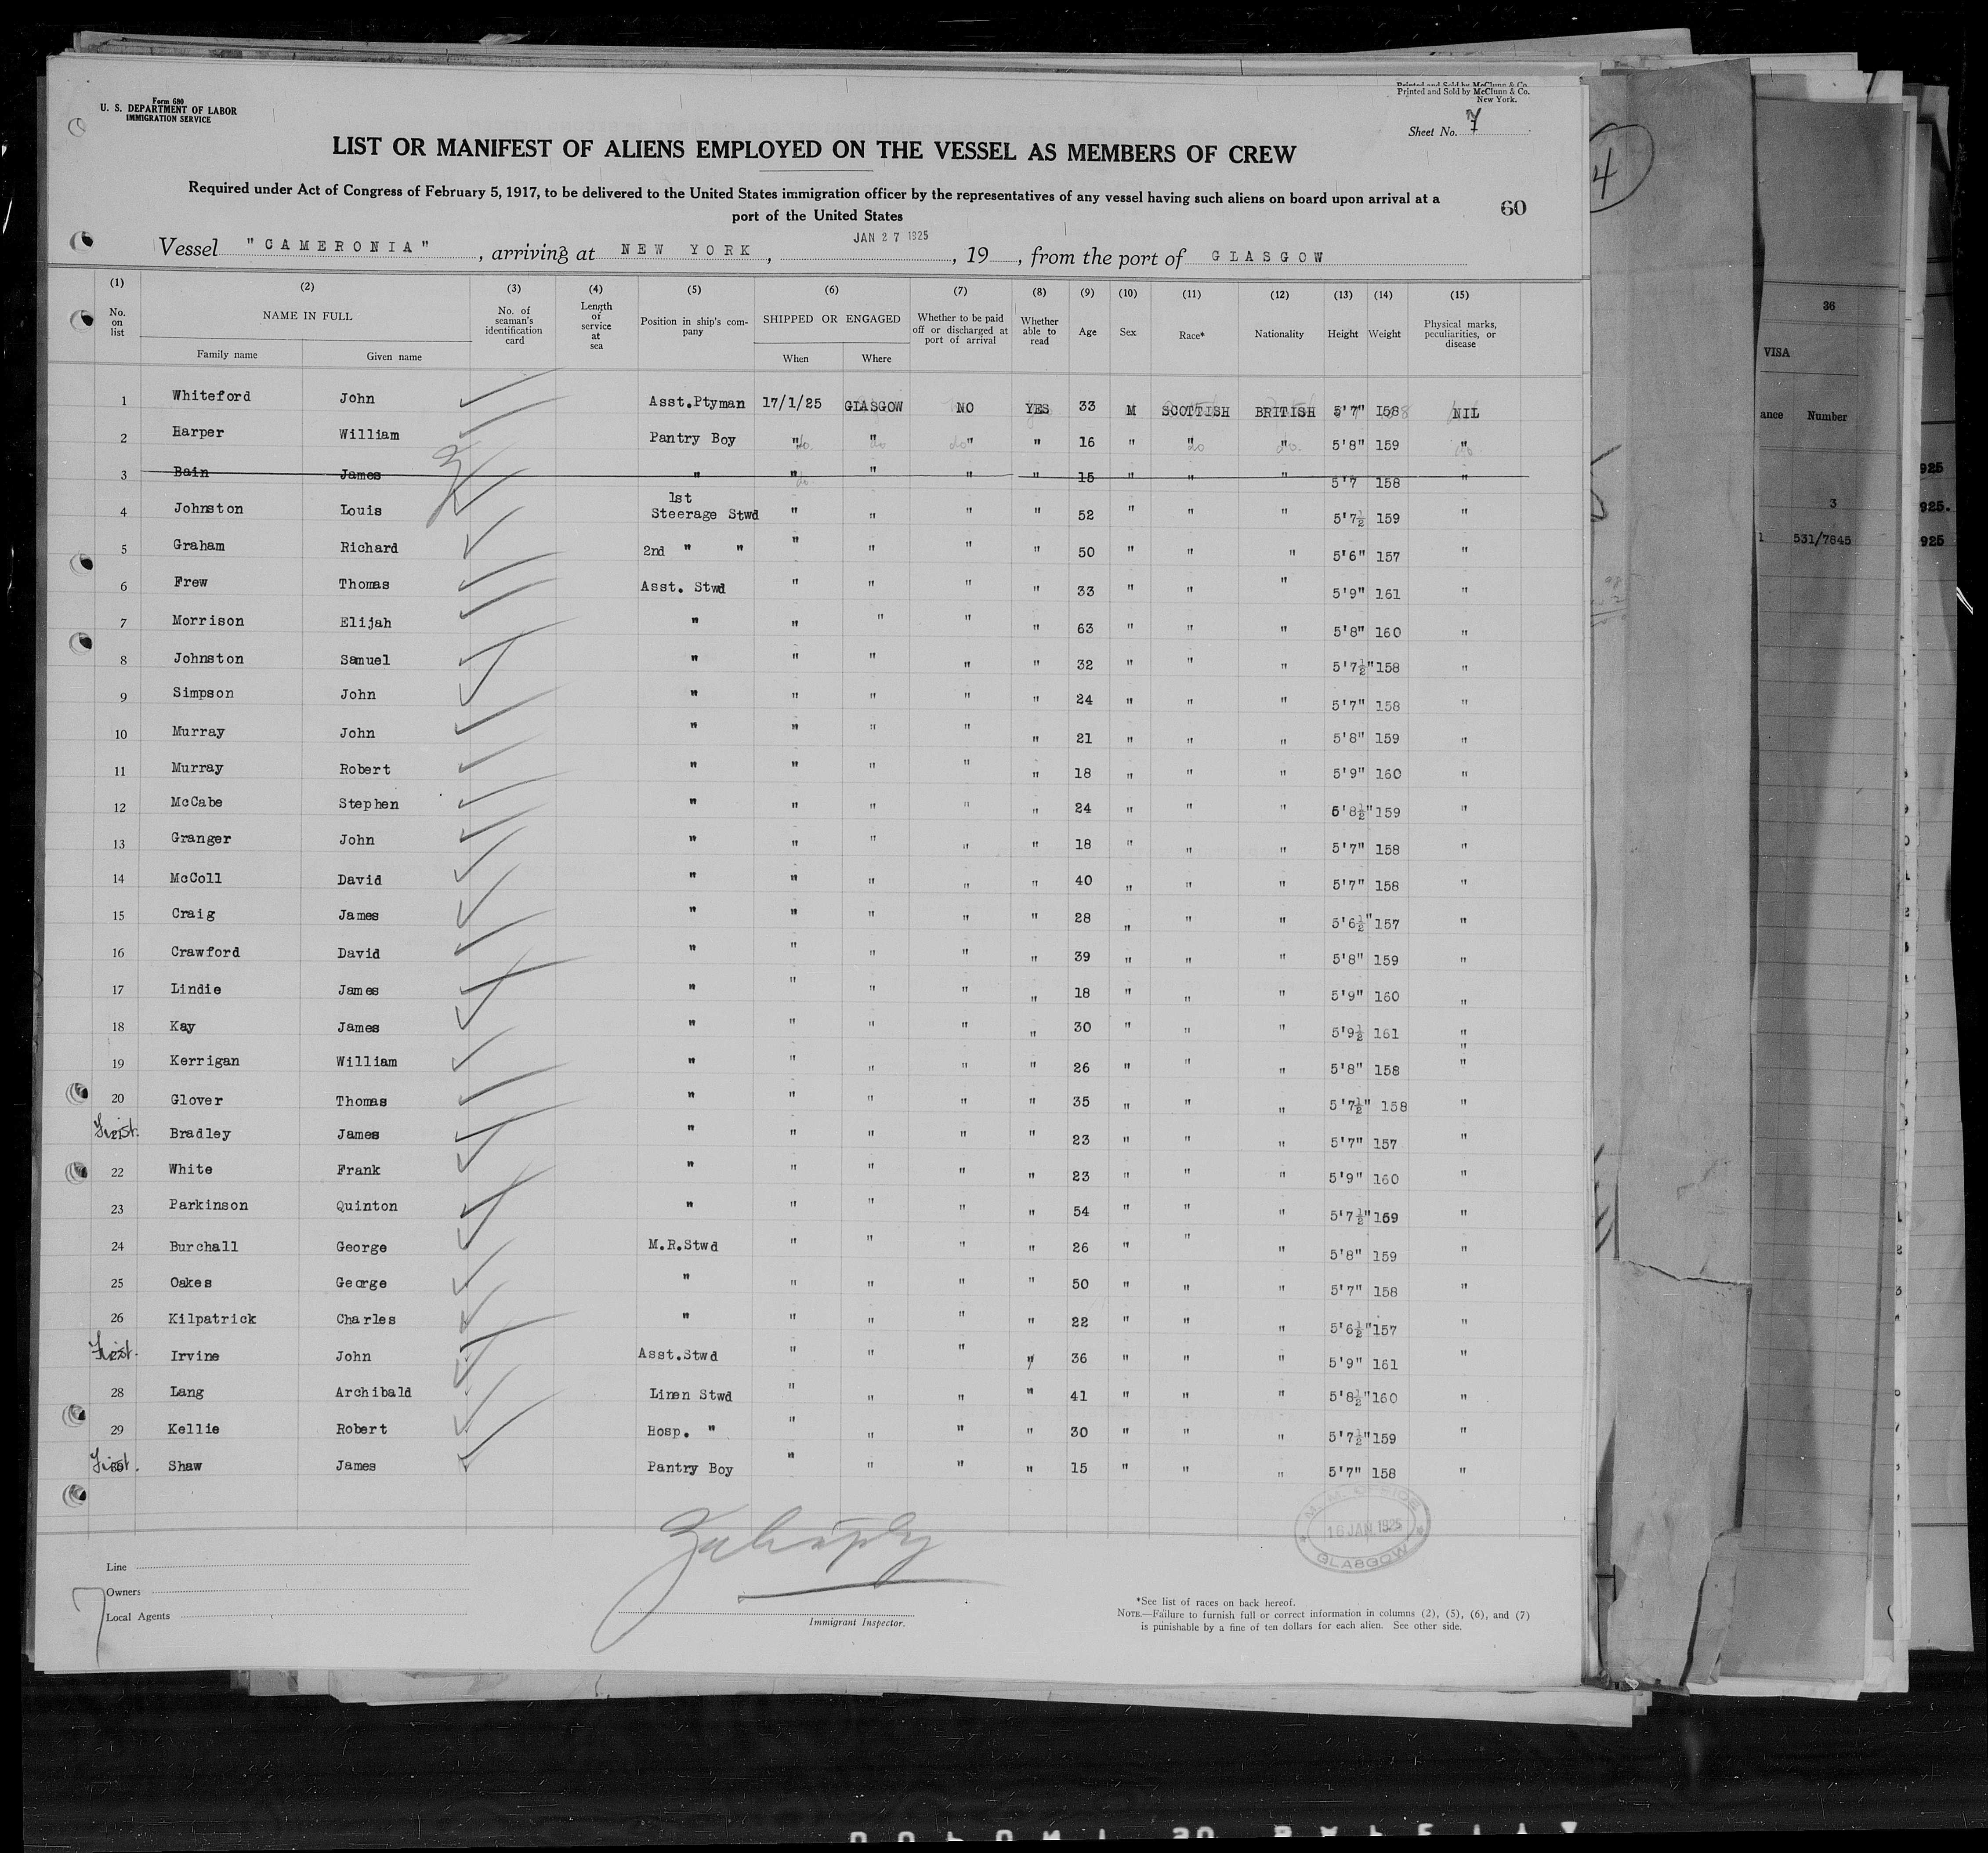 Form 680
U. S. DEPARTMENT OF LABOR
IMMIGRATION SERVICE
Printed and Sold by McClunn & Co.
Printed and Sold by McClunn & Co.
New York.
Sheet No. 7
LIST OR MANIFEST OF ALIENS EMPLOYED ON THE VESSEL AS MEMBERS OF CREW
Required under Act of Congress of February 5, 1917, to be delivered to the United States immigration officer by the representatives of any vessel having such aliens on board upon arrival at a
port of the United States
60
Vessel "CAMERONIA", arriving at NEW YORK, JAN 27 1925, 19, from the port of GLASGOW
(1) (2) (3) (4) (5) (6) (7) (8) (9) (10) (11) (12) (13) (14) (15)
No. on list
NAME IN FULL
Family name Given name
No. of seaman's identification card
Length of service at sea
Position in ship's company
SHIPPED OR ENGAGED
When Where
Whether to be paid off or discharged at port of arrival
Whether able to read
Age Sex Race* Nationality Height Weight
Physical marks, peculiarities, or disease
1 Whiteford John Asst.Ptyman 17/1/25 GLASGOW NO YES 33 M SCOTTISH BRITISH 5'7" 158 NIL
2 Harper William Pantry Boy " " " " 16 " " " 5'8" 159 "
3 Bain James " " " " " 15 " " " 5'7 158 "
4 Johnston Louis 1st Steerage Stwd " " " " 52 " " " 5'7½ 159 "
5 Graham Richard 2nd " " " " " " 50 " " " 5'6" 157 "
6 Frew Thomas Asst. Stwd " " " " 33 " " " 5'9" 161 "
7 Morrison Elijah " " " " " 63 " " " 5'8" 160 "
8 Johnston Samuel " " " " " 32 " " " 5'7½" 158 "
9 Simpson John " " " " " 24 " " " 5'7" 158 "
10 Murray John " " " " " 21 " " " 5'8" 159 "
11 Murray Robert " " " " " 18 " " " 5'9" 160 "
12 McCabe Stephen " " " " " 24 " " " 5'8½" 159 "
13 Granger John " " " " " 18 " " " 5'7" 158 "
14 McColl David " " " " " 40 " " " 5'7" 158 "
15 Craig James " " " " " 28 " " " 5'6½" 157 "
16 Crawford David " " " " " 39 " " " 5'8" 159 "
17 Lindie James " " " " " 18 " " " 5'9" 160 "
18 Kay James " " " " " 30 " " " 5'9½ 161 "
19 Kerrigan William " " " " " 26 " " " 5'8" 158 " "
20 Glover Thomas " " " " " 35 " " " 5'7½" 158 "
First. Bradley James " " " " " 23 " " " 5'7" 157 "
22 White Frank " " " " " 23 " " " 5'9" 160 "
23 Parkinson Quinton " " " " " 54 " " " 5'7½" 159 "
24 Burchall George M.R.Stwd " " " " 26 " " " 5'8" 159 "
25 Oakes George " " " " " 50 " " " 5'7" 158 "
26 Kilpatrick Charles " " " " " 22 " " " 5'6½" 157 "
First. Irvine John Asst.Stwd " " " " 36 " " " 5'9" 161 "
28 Lang Archibald Linen Stwd " " " " 41 " " " 5'8½" 160 "
29 Kellie Robert Hosp. " " " " " 30 " " " 5'7½" 159 "
First. 30 Shaw James Pantry Boy " " " " 15 " " " 5'7" 158 "
M.M. OFFICE
16 JAN 1925
GLASGOW
Line
Owners
Local Agents
7
Immigrant Inspector.
*See list of races on back hereof.
NOTE.—Failure to furnish full or correct information in columns (2), (5), (6), and (7)
is punishable by a fine of ten dollars for each alien. See other side.
4
36
VISA
ance Number
3
531/7845
925
925.
925